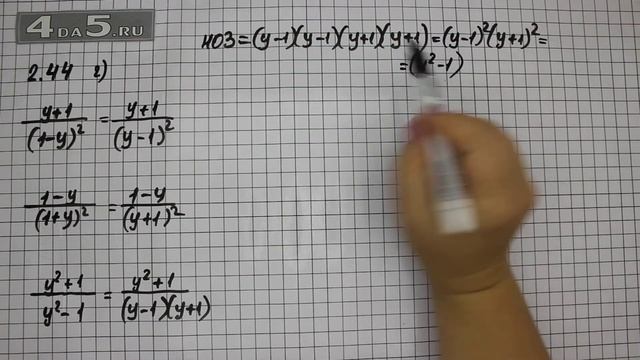 4DA5.RU
НОЗ=(y-1)(y-1)(y+1)(y+1)=(y-1)²(y+1)²=
=(y²-1)
2.44 г)
y+1/(1-y)² = y+1/(y-1)²
1-y/(1+y)² = 1-y/(y+1)²
y²+1/y²-1 = y²+1/(y-1)(y+1)